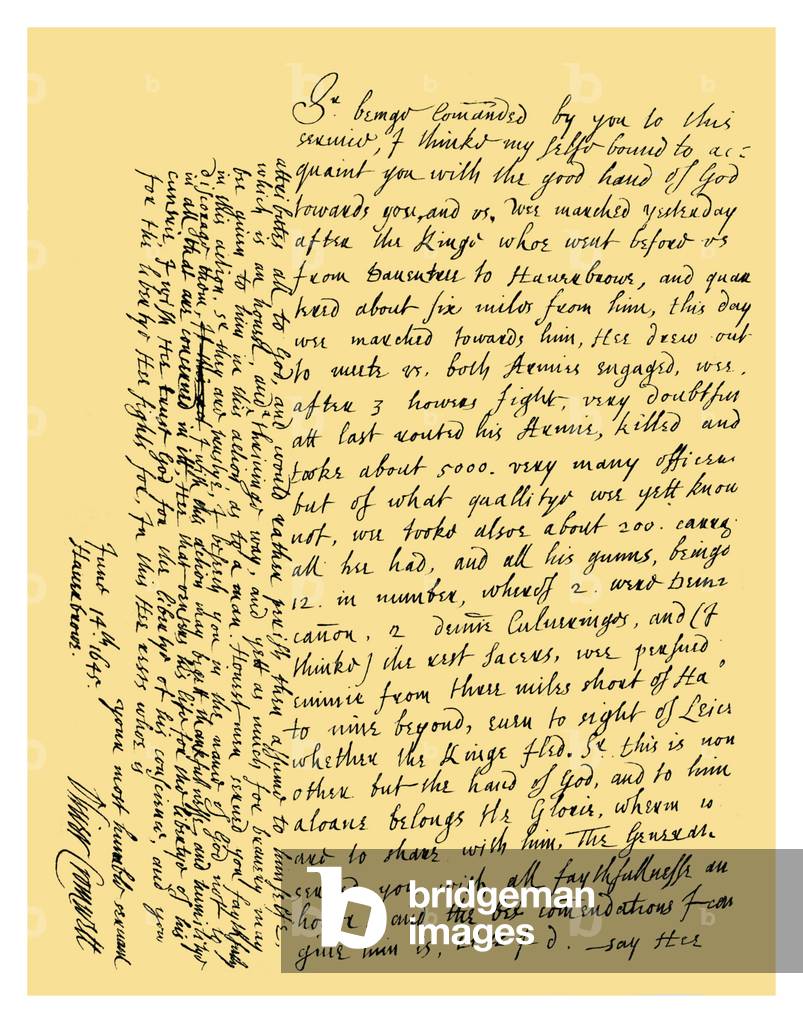 Sr. beinge Comanded by you to this
service, I thinke my selfe bound to ac=
quaint you with the good hand of God
towards you, and vs. Wee marched yesterday
after the Kinge whoe went before vs
from Dauentree to Hauerbrowe, and quar
tered about six miles from him, this day
wee marched towards him, Hee drew out
to meete vs. both Armies engaged, wee,
after 3 howers fight, very doubtfull
att last routed his Armie, killed and
tooke about 5000. very many officers
but of what quallitye wee yett know
not, wee tooke alsoe about 200. carrag.
all hee had, and all his gunns, beinge
12. in number, wherof 2. were Demie
cañon, 2 demie Culueringes, and (I
thinke) the rest Sacers, wee persued
enimie from three miles short of Ha
to nine beyond, euen to sight of Leics
whether the Kinge fled. Sr. this is non
other but the hand of God, and to him
aloane belongs the Glorie, wherin
are to share with him, The Generall
serued you with all faythfullnesse an
honor, and the best comendations I can
giue him is, say Hee
attributes all to God, and would rather perish then assume to himselfe,
which is an honest, and a thriuinge way, and yett as much for brauery may
be giuen to him in this action, as to a man. Honest men serued you faythfully
in this action. Sr. they are trustye, I beseech you in the name of God not to
discorage them, I wish this action may begett thankfullnesse, and humilitye
in all that are concerned in itt, Hee that venters his life for the libertye of his
cuntrie, I wish Hee trust God for the libertye of his conscience, and you
for the libertye Hee fights for, In this Hee rests whoe is
your most humble seruant
June 14th. 1645
Hauerbrowe.
Oliuer Cromwell
bridgeman
images